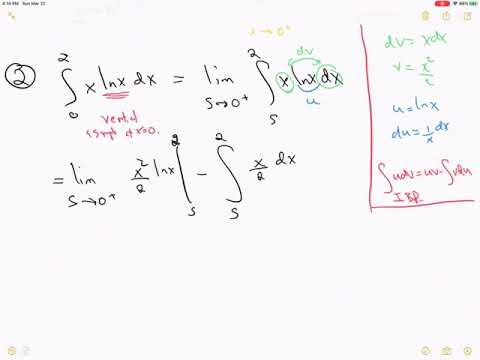 4:14 PM Sun Mar 22
s→0⁺
② ∫₀² x ln x dx = lim_{s→0⁺} ∫ₛ² x ln x dx
dv
u
vertical
asympt at x=0.
= lim_{s→0⁺} x²/2 ln x |ₛ² - ∫ₛ² x/2 dx
dv = x dx
v = x²/2
u = ln x
du = 1/x dx
∫udv = uv - ∫vdu
IBP